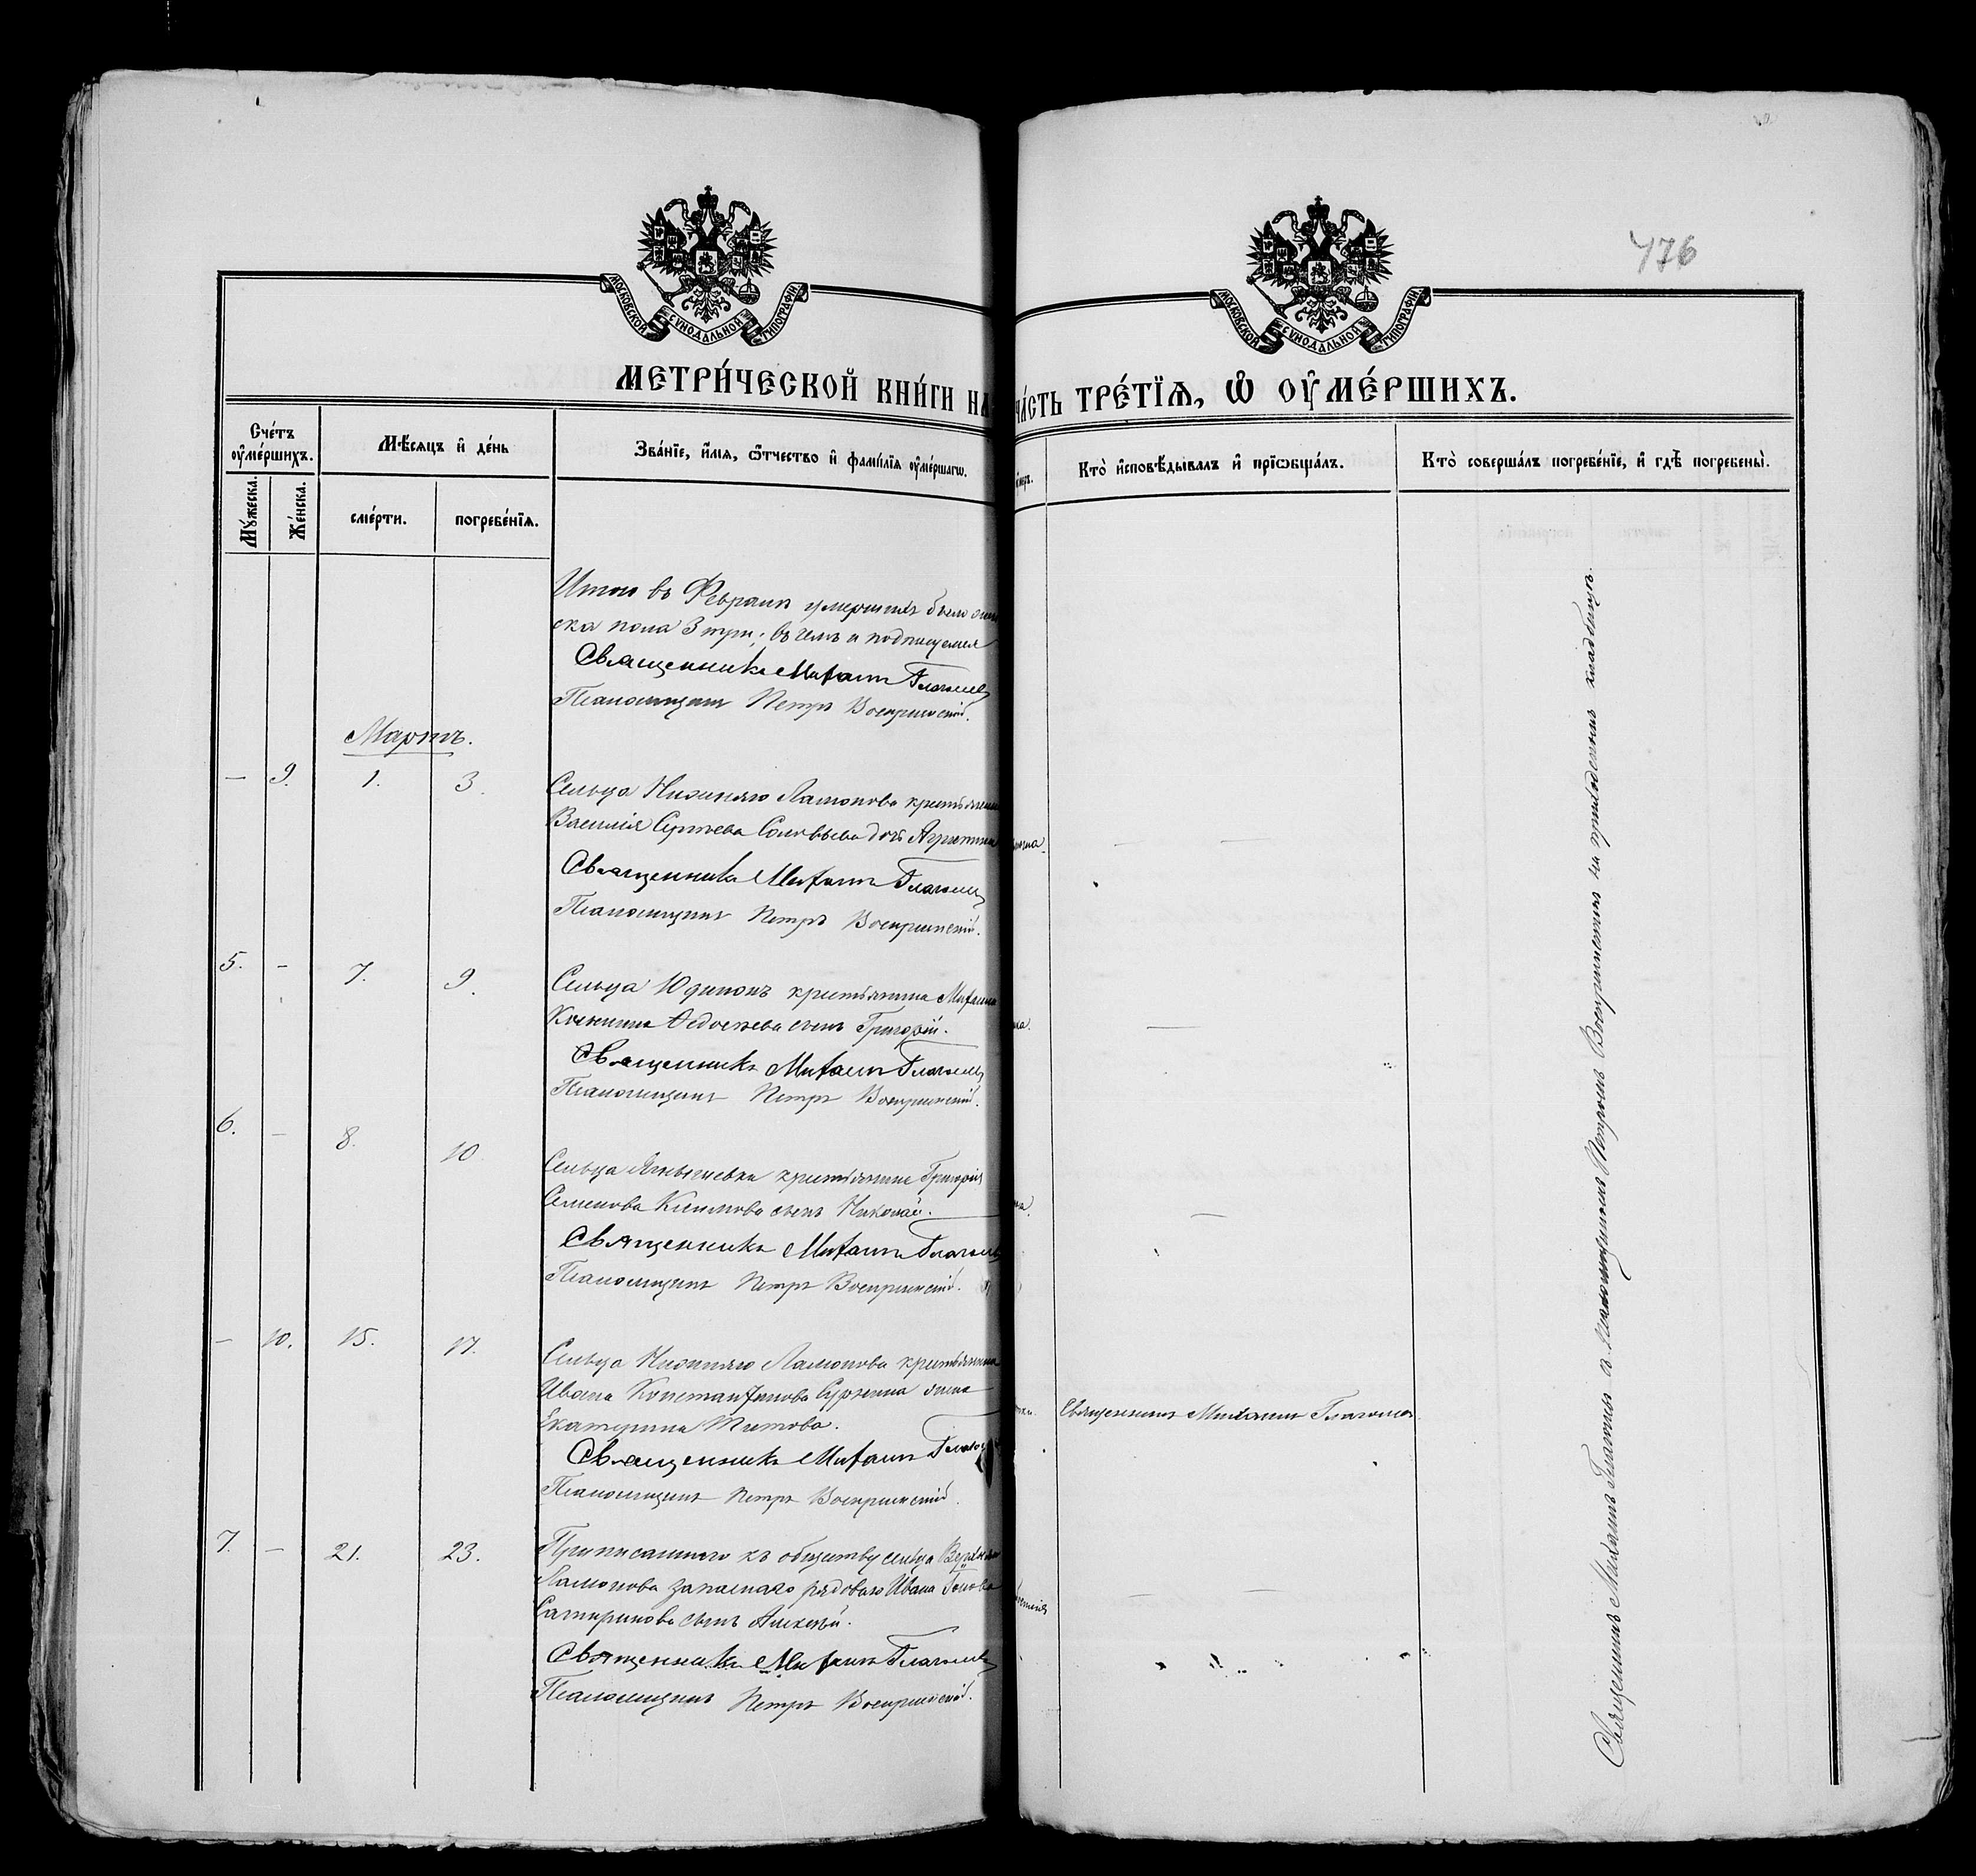 476
МОСКОВСКОЙ СѴНОДАЛЬНОЙ ТИПОГРАФІИ
МОСКОВСКОЙ СѴНОДАЛЬНОЙ ТИПОГРАФІИ
МЕТРИ́ЧЕСКОЙ КНИ́ГИ НА
ЧА́СТЬ ТРЕ́ТЇѦ, Ѽ ОУ҆МЕ́РШИХЪ.
Сче́тъ оу҆ме́ршихъ.
Мѣ́сѧцъ и҆ де́нь
Зва́нїе, и҆́мѧ, ѻ҆́тчество и҆ фами́лїѧ оу҆ме́ршагѡ.
Кто̀ и҆сповѣ́дывалъ и҆ прїѡбща́лъ.
Кто̀ соверша́лъ погребе́нїе, и҆ гдѣ̀ погребены̀.
Мꙋ́жеска.
Же́нска.
сме́рти.
погребе́нїѧ.
Итого въ Февралѣ умершихъ было
ска пола 3 три; въ чемъ и подписуемся
Священникъ Михаилъ Глаголев
Псаломщикъ Петръ Воскресенскій.
Мартъ.
— 9. 1. 3.
Сельца Нижняго Ламонова крестьянина
Василія Сергѣева Соловьева дочь Агрипина
Священникъ Михаилъ Глаголев
Псаломщикъ Петръ Воскресенскій.
5. — 7. 9.
Сельца Юдинокъ крестьянина Михаила
Ѳедосѣева сынъ Григорій.
Священникъ Михаилъ Глаголев
Псаломщикъ Петръ Воскресенскій.
6. — 8. 10.
Сельца крестьянина Григорія
Семенова Климова сынъ Николай.
Священникъ Михаилъ Глаголев
Псаломщикъ Петръ Воскресенскій.
— 10. 15. 17.
Сельца Нижняго Ламонова крестьянина
Ивана Константинова жена
Екатерина Титова.
Священникъ Михаилъ Глагол
Псаломщикъ Петръ Воскресенскій.
Священникъ Михаилъ Глаголев
7. — 21. 23.
Приписаннаго къ обществу сельца Верхняго
Ламонова запаснаго рядоваго Ивана
сынъ Алексѣй.
Священникъ Михаилъ Глаголев
Псаломщикъ Петръ Воскресенскій.
Священникъ Михаилъ Глаголевъ съ Псаломщикомъ Петромъ Воскресенскимъ на приходскомъ кладбищѣ.